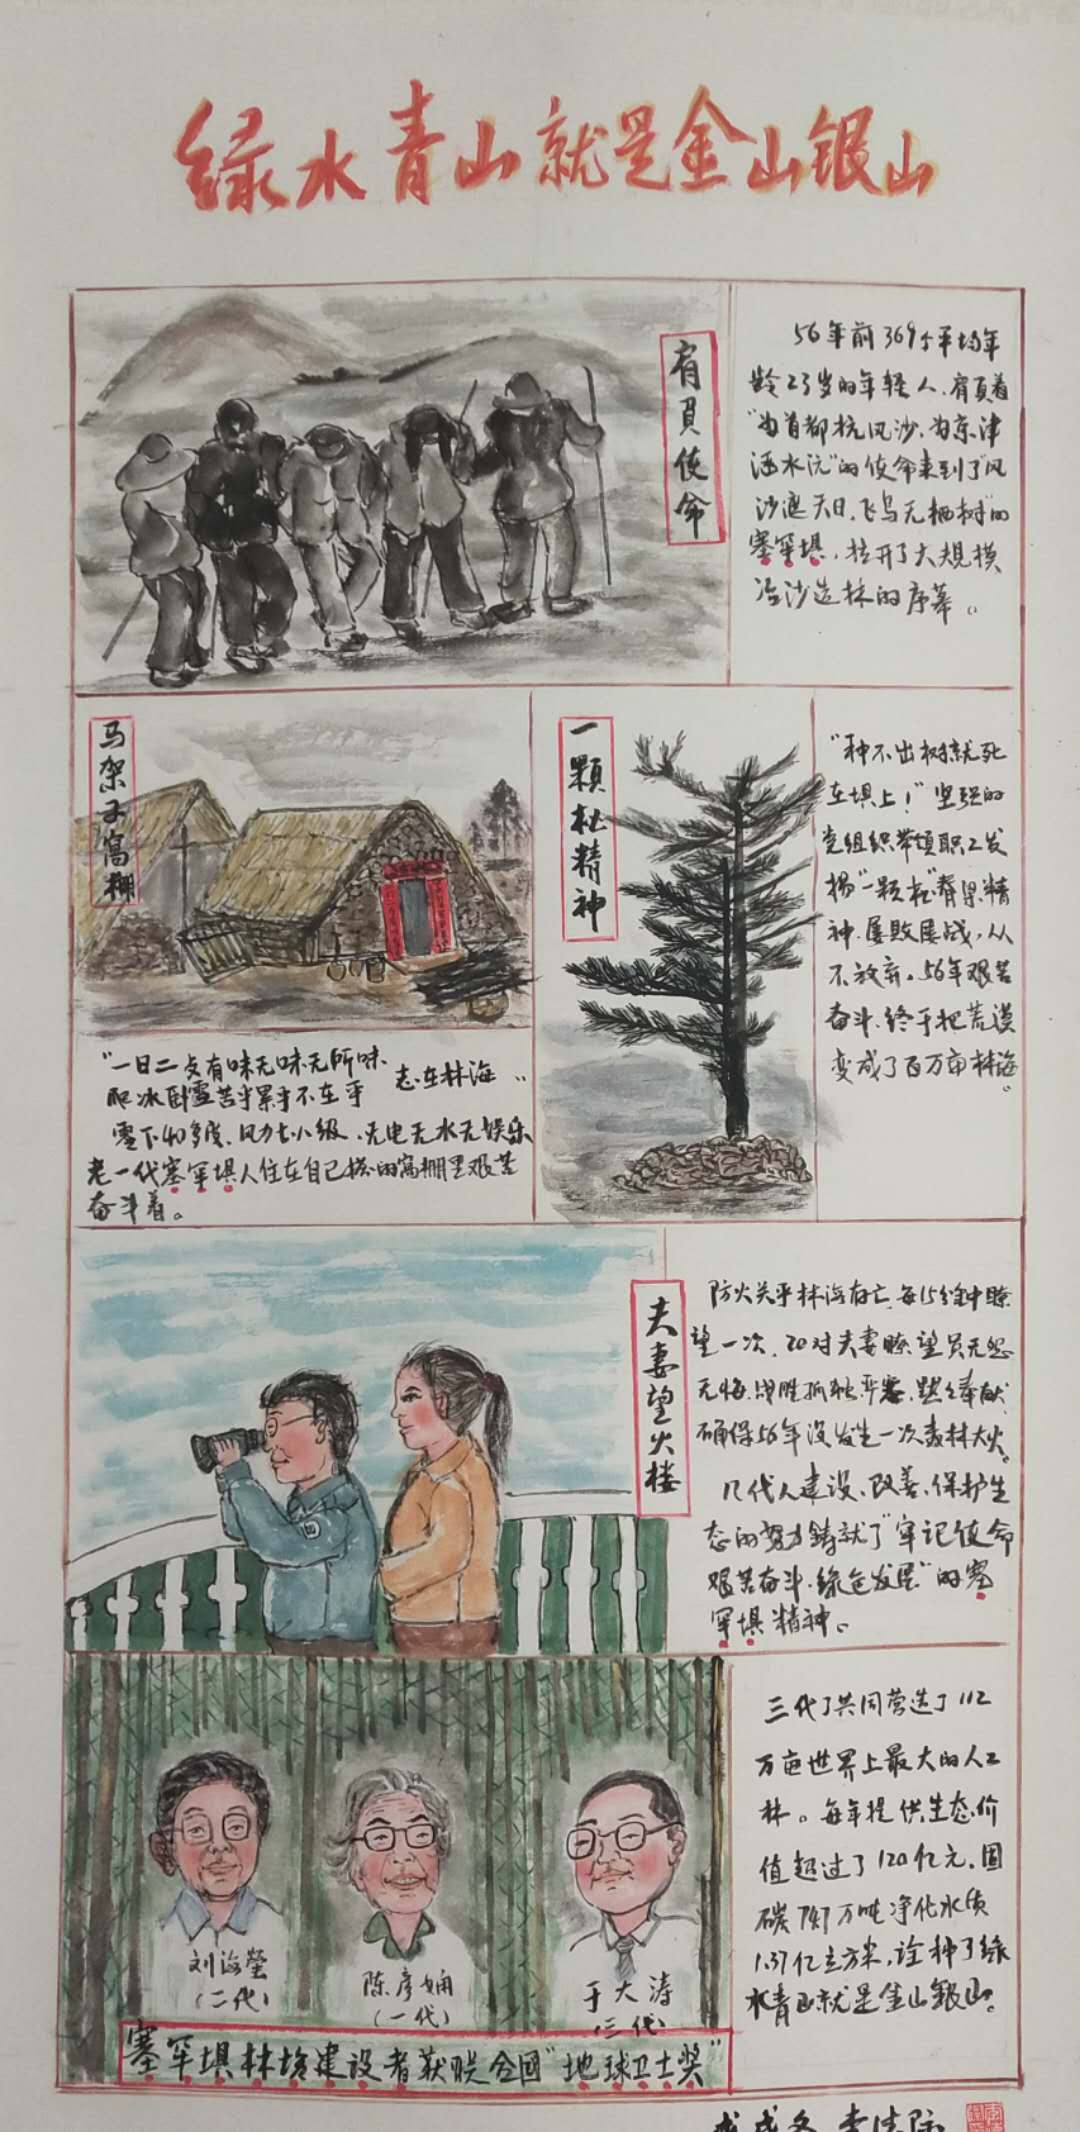 绿水青山就是金山银山
肩负使命
56年前369个平均年
龄23岁的年轻人,肩负着
"为首都抗风沙、为京津
涵水沅"的使命来到了"风
沙遮天日,飞鸟无栖树"的
塞罕坝,拉开了大规模
治沙造林的序幕。
马架子窝棚
"一日二曳有味无味无所味
爬冰卧雪苦乎累乎不在乎
志在林海"
零下40多度、风力七八级、无电无水无娱乐
老一代塞罕坝人住在自己搭的窝棚里艰苦
奋斗着。
一颗松精神
"种不出树就死
在坝上!"坚强的
党组织带领职工发
扬"一颗松"脊梁精
神、屡败屡战,从
不放弃。56年艰苦
奋斗、终于把荒漠
变成了百万亩林海。
夫妻望火楼
防火关乎林海存亡,每15分钟瞭
望一次,20对夫妻瞭望员无怨
无悔、战胜孤独严寒、默默奉献、
确保56年没发生一次森林大火。
几代人建设、改善、保护生
态的努力铸就了"牢记使命
艰苦奋斗、绿色发展"的塞
罕坝精神。
刘海莹
(二代)
陈彦娴
(一代)
于大涛
(三代)
塞罕坝林场建设者获联合国"地球卫士奖"
三代了共同营造了112
万亩世界上最大的人工
林。每年提供生态价
值超过了120亿元,固
碳747万吨净化水质
1.37亿立方米,诠释了绿
水青山就是金山银山。